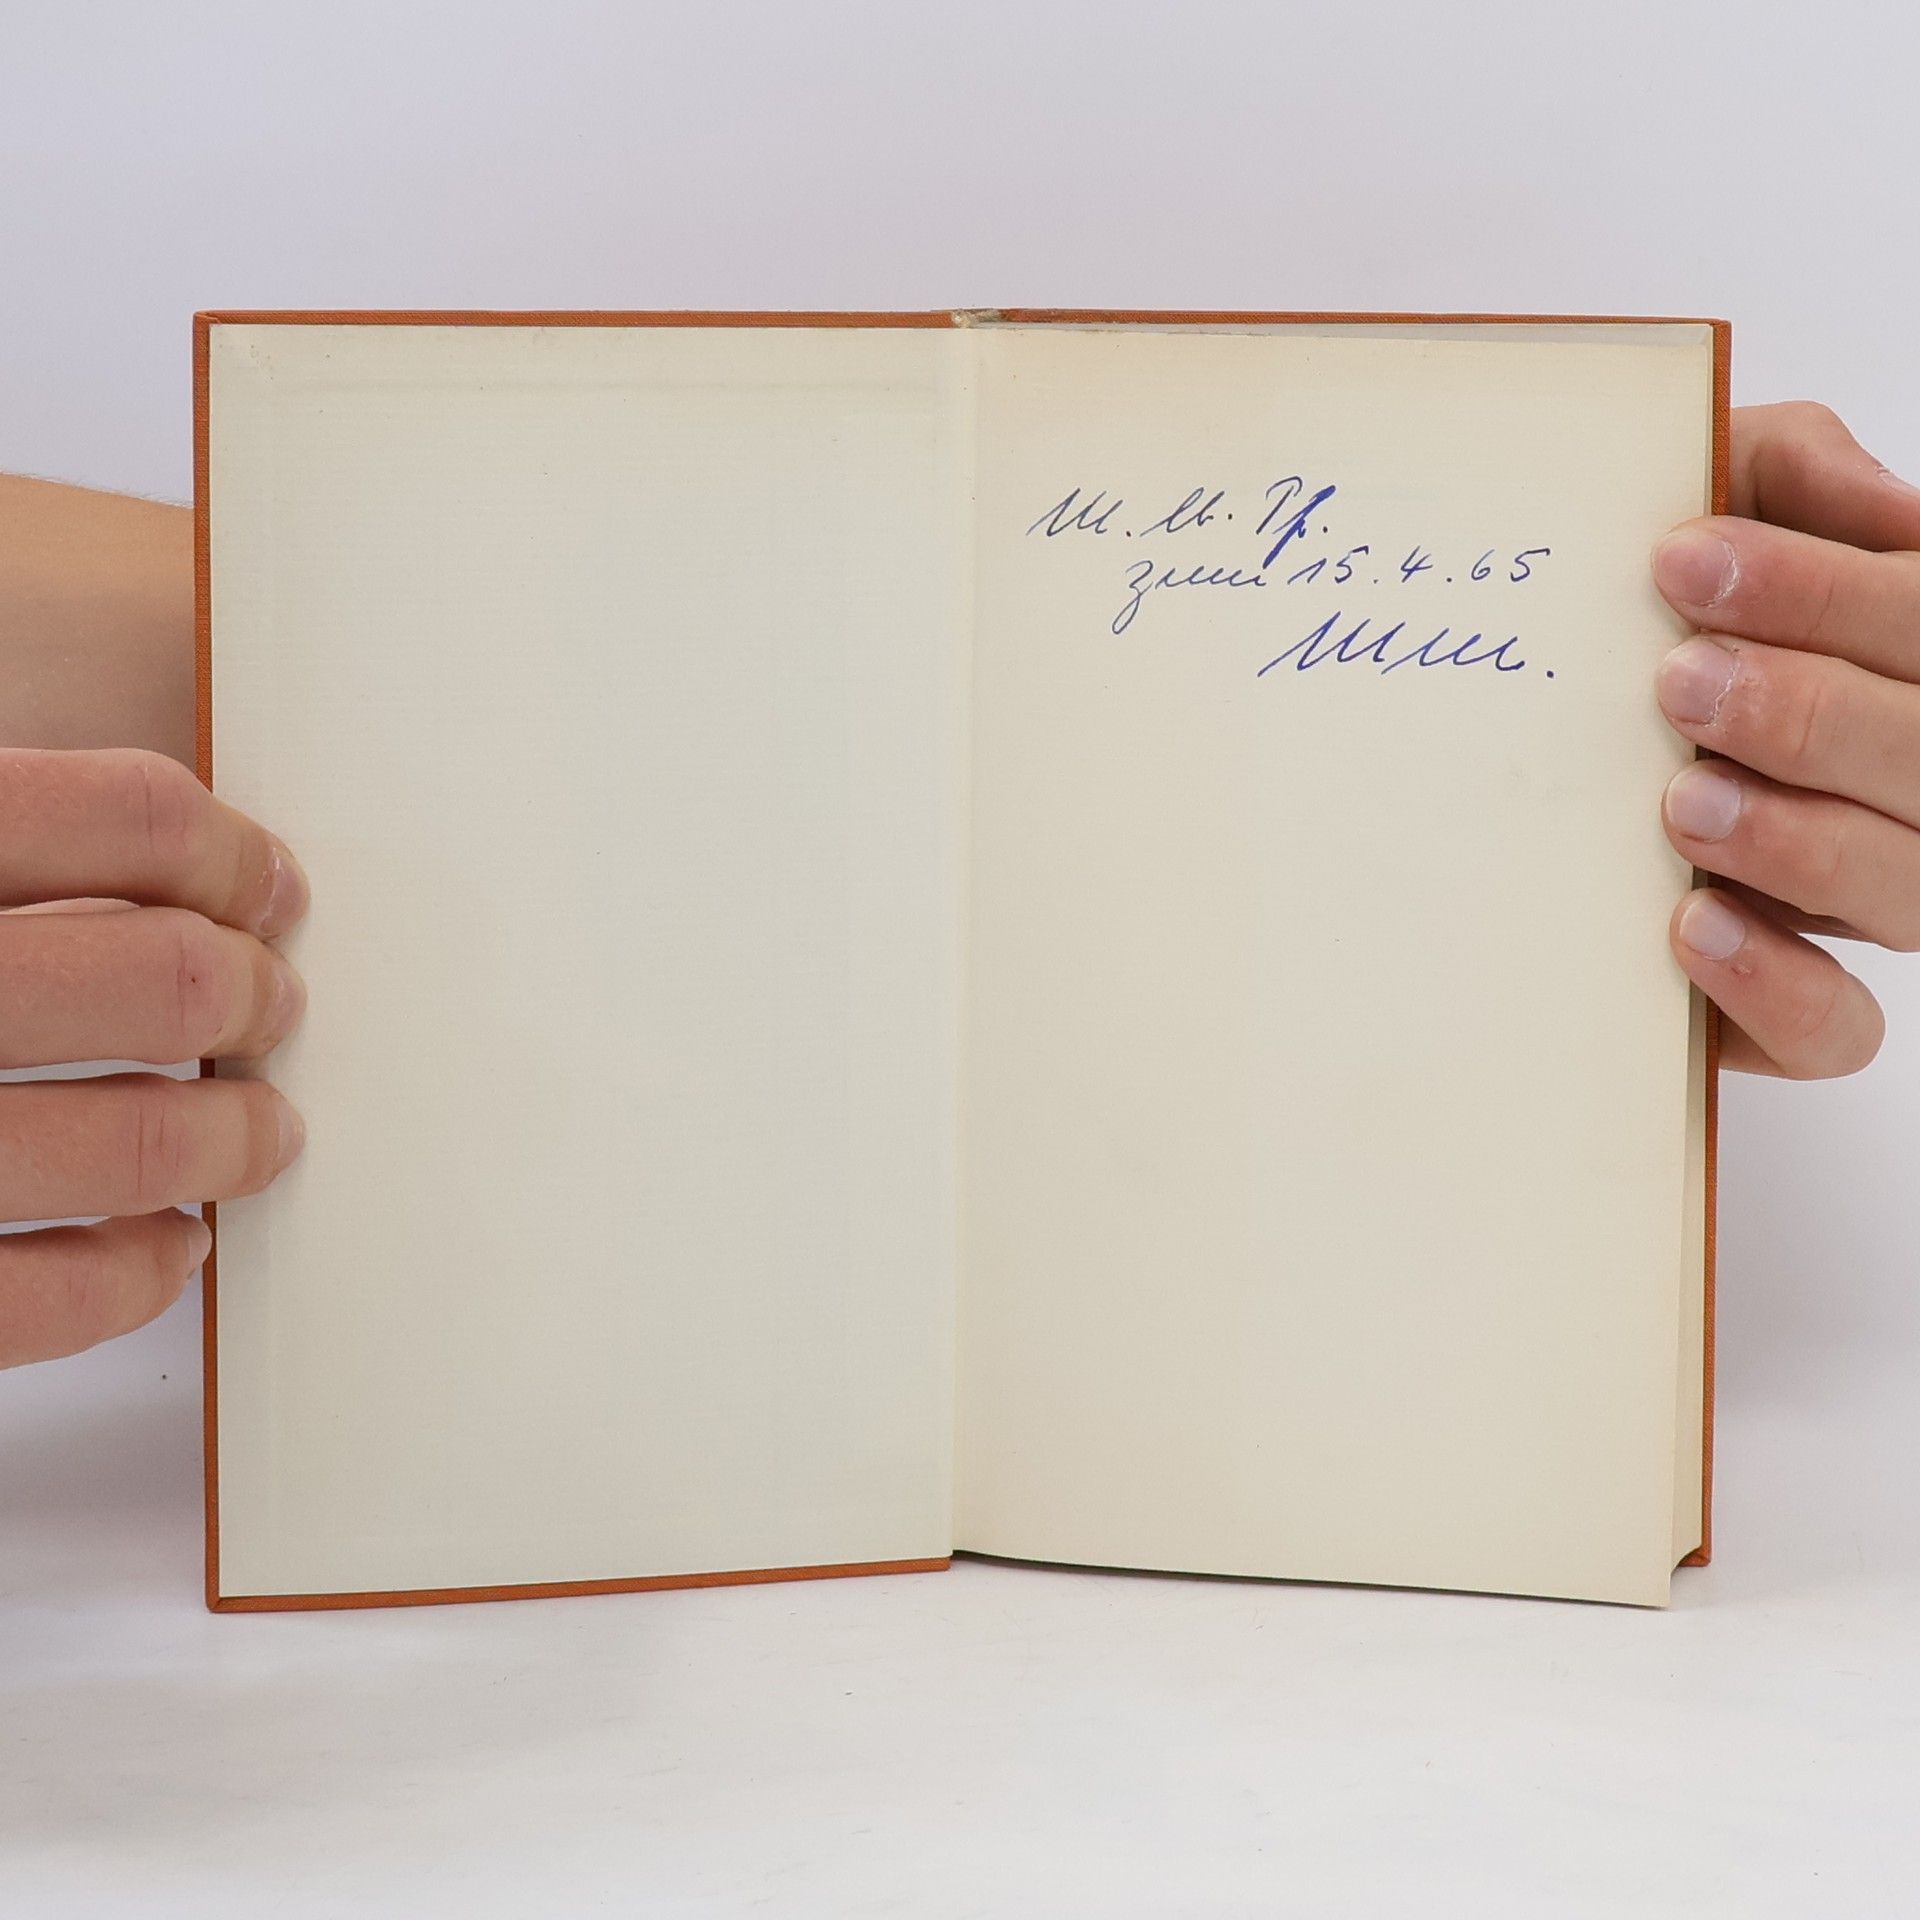 M. lb. Pf.
zum 15.4.65